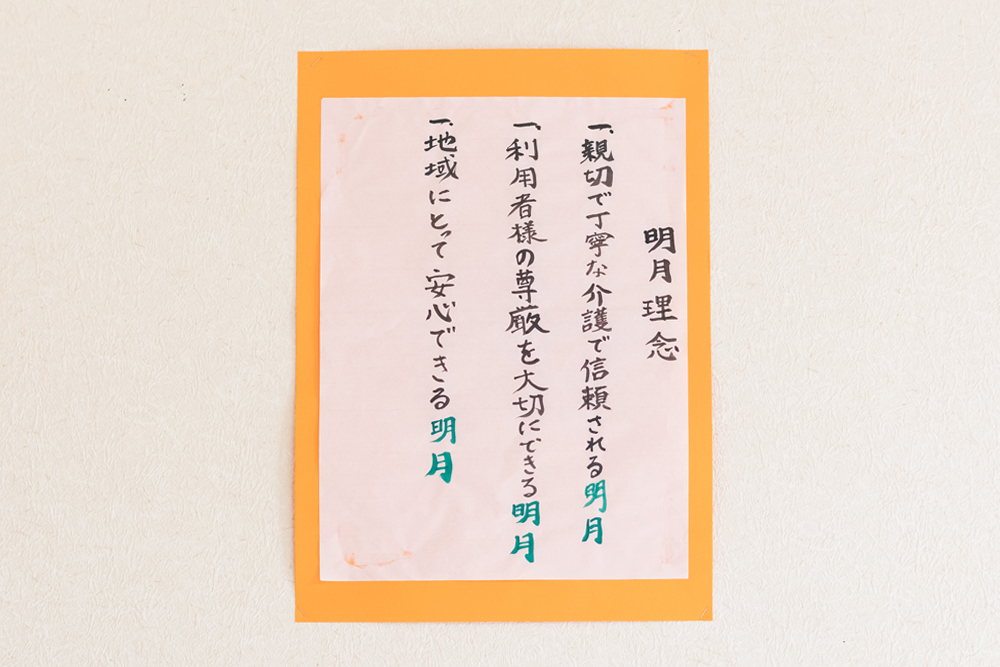 明月理念
一、親切で丁寧な介護で信頼される明月
一、利用者様の尊厳を大切にできる明月
一、地域にとって安心できる明月